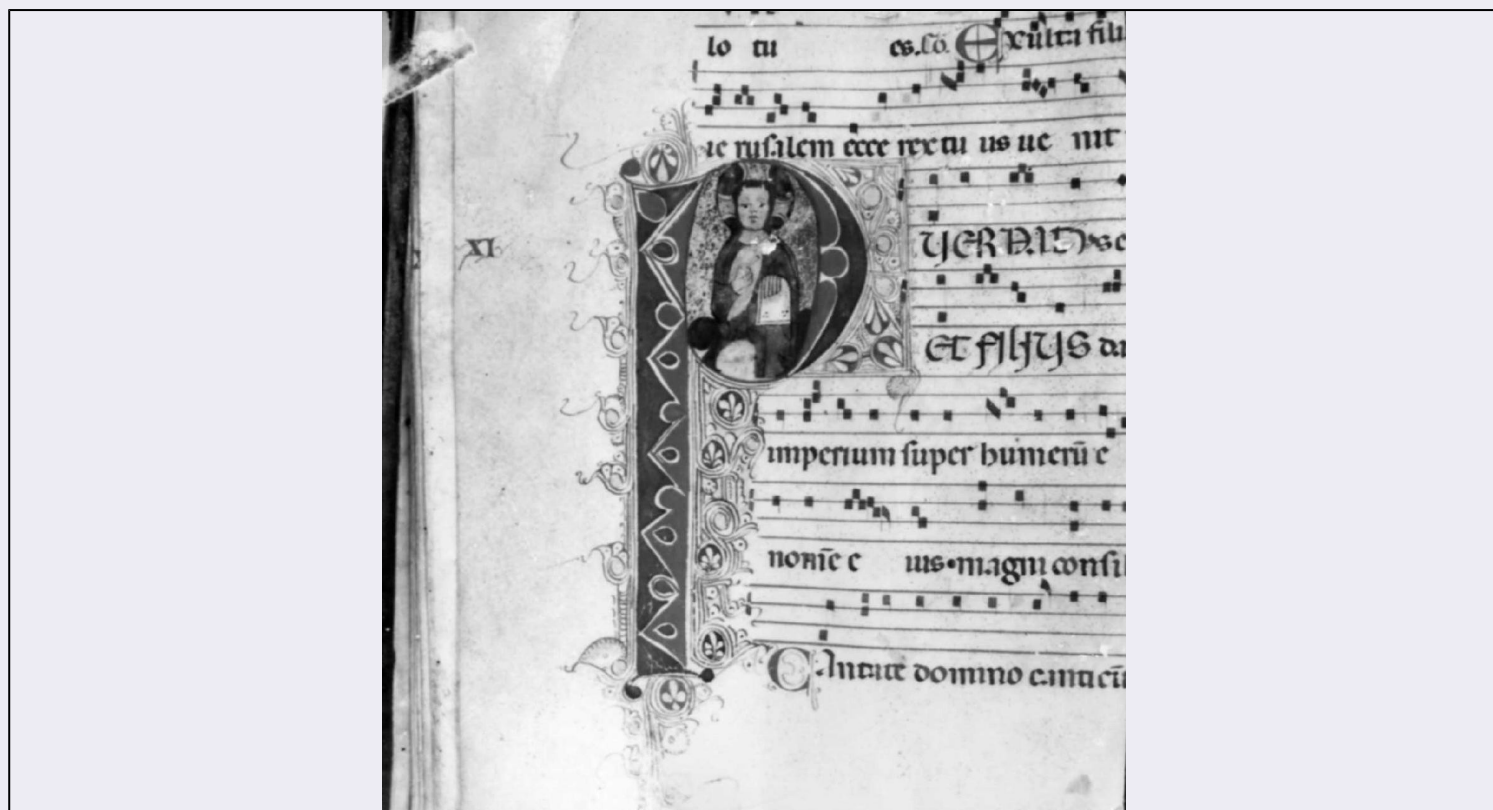 lo tu es. Co. Exulta fili
ie rusalem ecce rex tu us ue nit
XI
PUER NATUS
ET FILIUS da
imperium super humerū e
nom̄e e ius. magni consil
Cantate domino canticū